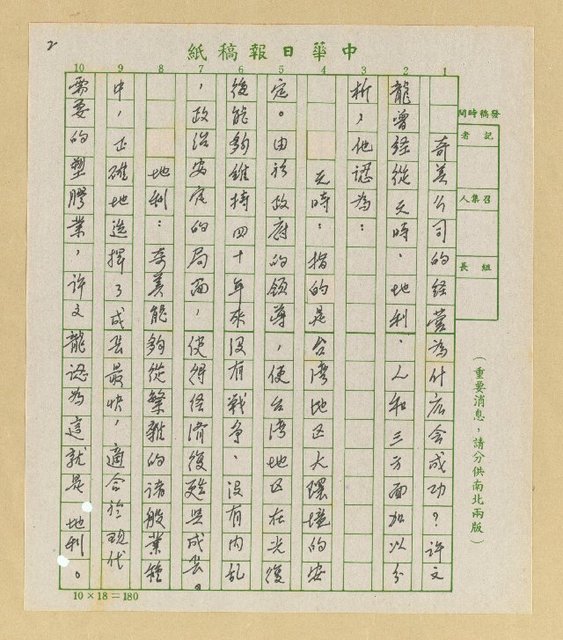 中華日報稿紙
2
1 2 3 4 5 6 7 8 9 10
發稿時間
記者
召集人
組長
奇美公司的経营為什広会成功？許文
龍曾経從天時、地利、人和三方面加以分
析，他認為：
天時：指的是台湾地区大環境的安
定。由於政府的領導，使台湾地区在光復
後能夠維持四十年來没有戦争、没有内乱
，政治安定的局面，使得経済成長。
地利：奇美能夠從繁雜的諸般業種
中，正確地选擇了成長最快，適合於现代
需要的塑膠業，許文龍認為這就是地利。
（重要消息，請分供南北兩版）
10×18＝180